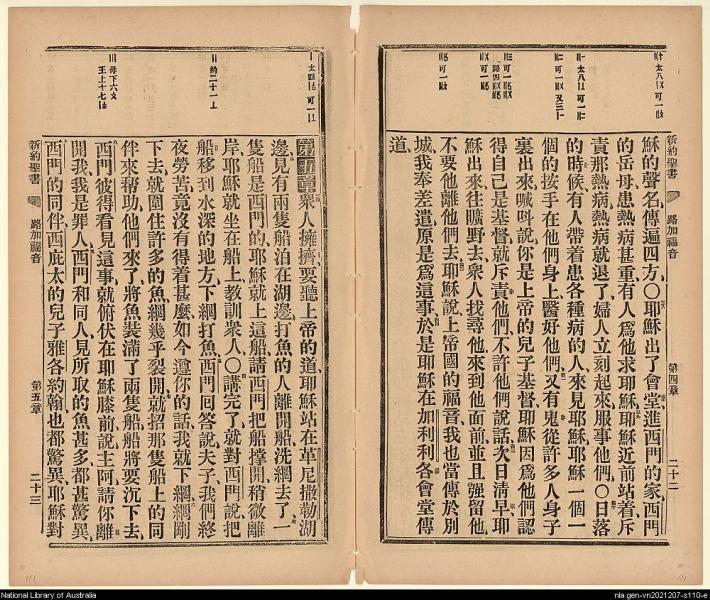 新約聖書
路加福音
第四章
二十二
穌的聲名傳遍四方〇耶穌出了會堂進西門的家西門
的岳母患熱病甚重有人為他求耶穌耶穌近前站着斥
責那熱病熱病就退了婦人立刻起來服事他們〇日落
的時候有人帶着患各種病的人來見耶穌耶穌一個一
個的按手在他們身上醫好他們又有鬼從許多人身子
裏出來喊叫說你是上帝的兒子基督耶穌因為他們認
得自己是基督就斥責他們不許他們說話次日清早耶
穌出來往曠野去衆人找尋他來到他面前並且強留他
不要他離他們去耶穌說上帝國的福音我也當傳於別
城我奉差遣原是為這事於是耶穌在加利利各會堂傳
道
衆人擁擠要聽上帝的道耶穌站在革尼撒勒湖
邊見有兩隻船泊在湖邊打魚的人離開船洗網去了一
隻船是西門的耶穌就上這船請西門把船撐開稍微離
岸耶穌就坐在船上教訓衆人〇講完了就對西門說把
船移到水深的地方下網打魚西門回答說夫子我們終
夜勞苦竟沒有得着甚麼如今遵你的話我就下網網剛
下去就圈住許多的魚網幾乎裂開就招那隻船上的同
伴來幫助他們來了將魚裝滿了兩隻船船將要沉下去
西門彼得看見這事就俯伏在耶穌膝前說主阿請你離
開我我是罪人西門和同人見所取的魚甚多都甚驚異
西門的同伴西庇太的兒子雅各約翰也都驚異耶穌對
新約聖書
路加福音
第五章
二十三
National Library of Australia
nla.gen-vn2021207-s110-e